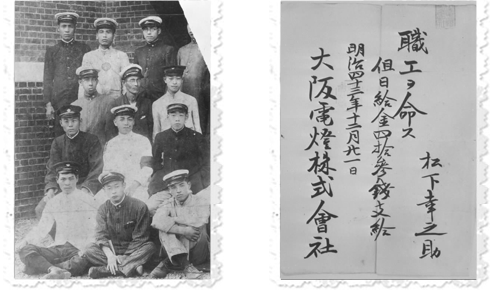 松下幸之助
職工ヲ命ス
但日給金四拾参錢支給
明治四十三年十二月廿一日
大阪電燈株式會社